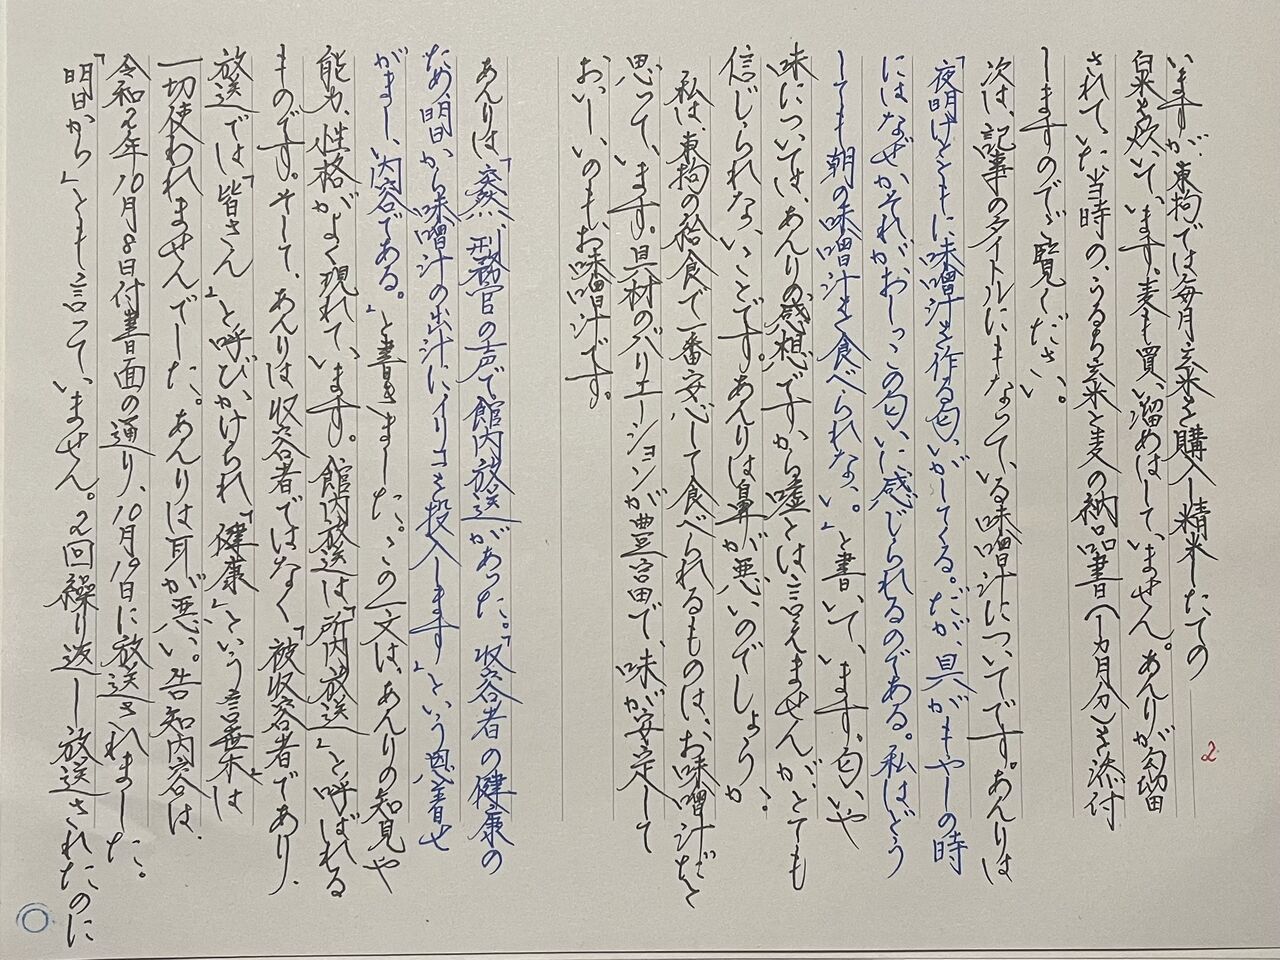 2.
いますが、東拘では毎月玄米を購入し精米したての
白米を炊いています。麦も買い溜めはしていません。あんりが勾留
されていた当時の、うるち玄米と麦の納品書（一ヵ月分）を添付
しますのでご覧ください。
次は、記事のタイトルにもなっている味噌汁についてです。あんりは
「夜明けとともに味噌汁を作る匂いがしてくる。だが、具がもやしの時
にはなぜかそれがおしっこの匂いに感じられるのである。私はどう
しても朝の味噌汁を食べられない。」と書いています。匂いや
味については、あんりの感想ですから嘘とは言えませんがとても
信じられないことです。あんりは鼻が悪いのでしょうか。
私は、東拘の給食で一番安心して食べられるものは、お味噌汁だと
思っています。具材のバリエーションが豊富で、味が安定して
おいしいのもお味噌汁です。
あんりは、「突然、刑務官の声で館内放送があった。「収容者の健康の
ため、明日から味噌汁の出汁にイリコを投入します」という恩着せ
がましい内容である。」と書きました。この一文は、あんりの知見や
能力、性格がよく現れています。館内放送は「所内放送」と呼ばれる
ものです。そして、あんりは収容者ではなく「被収容者」であり、
放送では「皆さん」と呼びかけられ「健康」という言葉は
一切使われませんでした。あんりは耳が悪い。告知内容は、
令和2年10月8日付書面の通り、10月19日に放送されました。
「明日から」とも言っていません。2回繰り返し放送されたのに